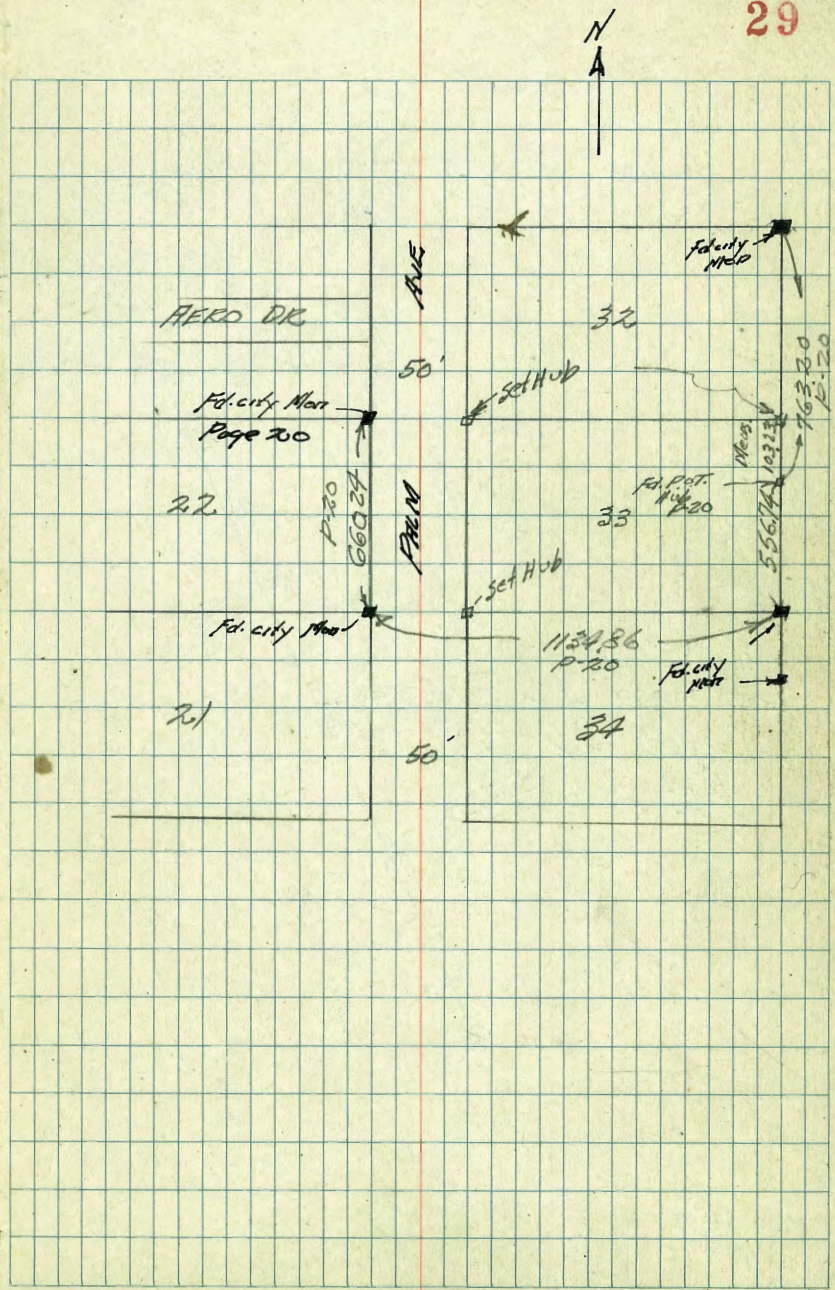 29
N
Fd. city
Mon
AVE
AERO DR
32
50'
set Hub
Fd. city Mon
Page 20
763.20
P-20
Meas.
103.23
22
P-20
660.24
PALM
Fd. P.O.T.
Hub
P-20
33
556.74
set Hub
Fd. city Mon
1134.86
P-20
Fd. city
Mon
21
34
50'